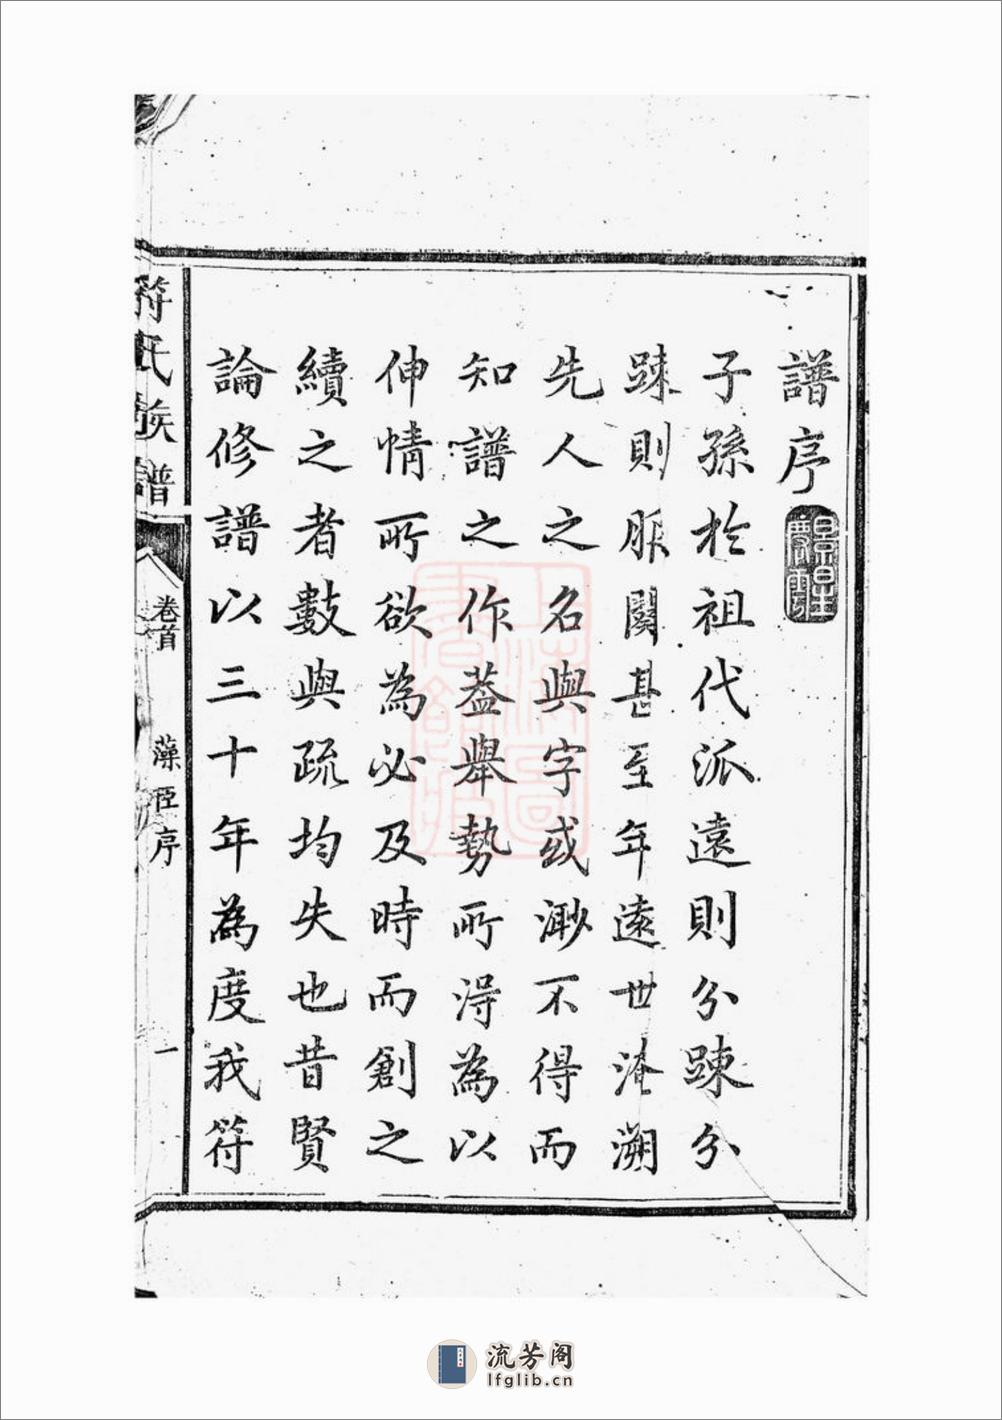 譜序
景星慶雲
子孫於祖代派遠則分踈分
踈則服闋甚至年遠世淹溯
先人之名與字或渺不得而
知譜之作葢舉勢所淂為以
伸情所欲為必及時而創之
續之者數與疏均失也昔賢
論修譜以三十年為度我符
符氏族譜
卷首
藻臣序
一
上海圖
書館藏
流芳阁
lfglib.cn